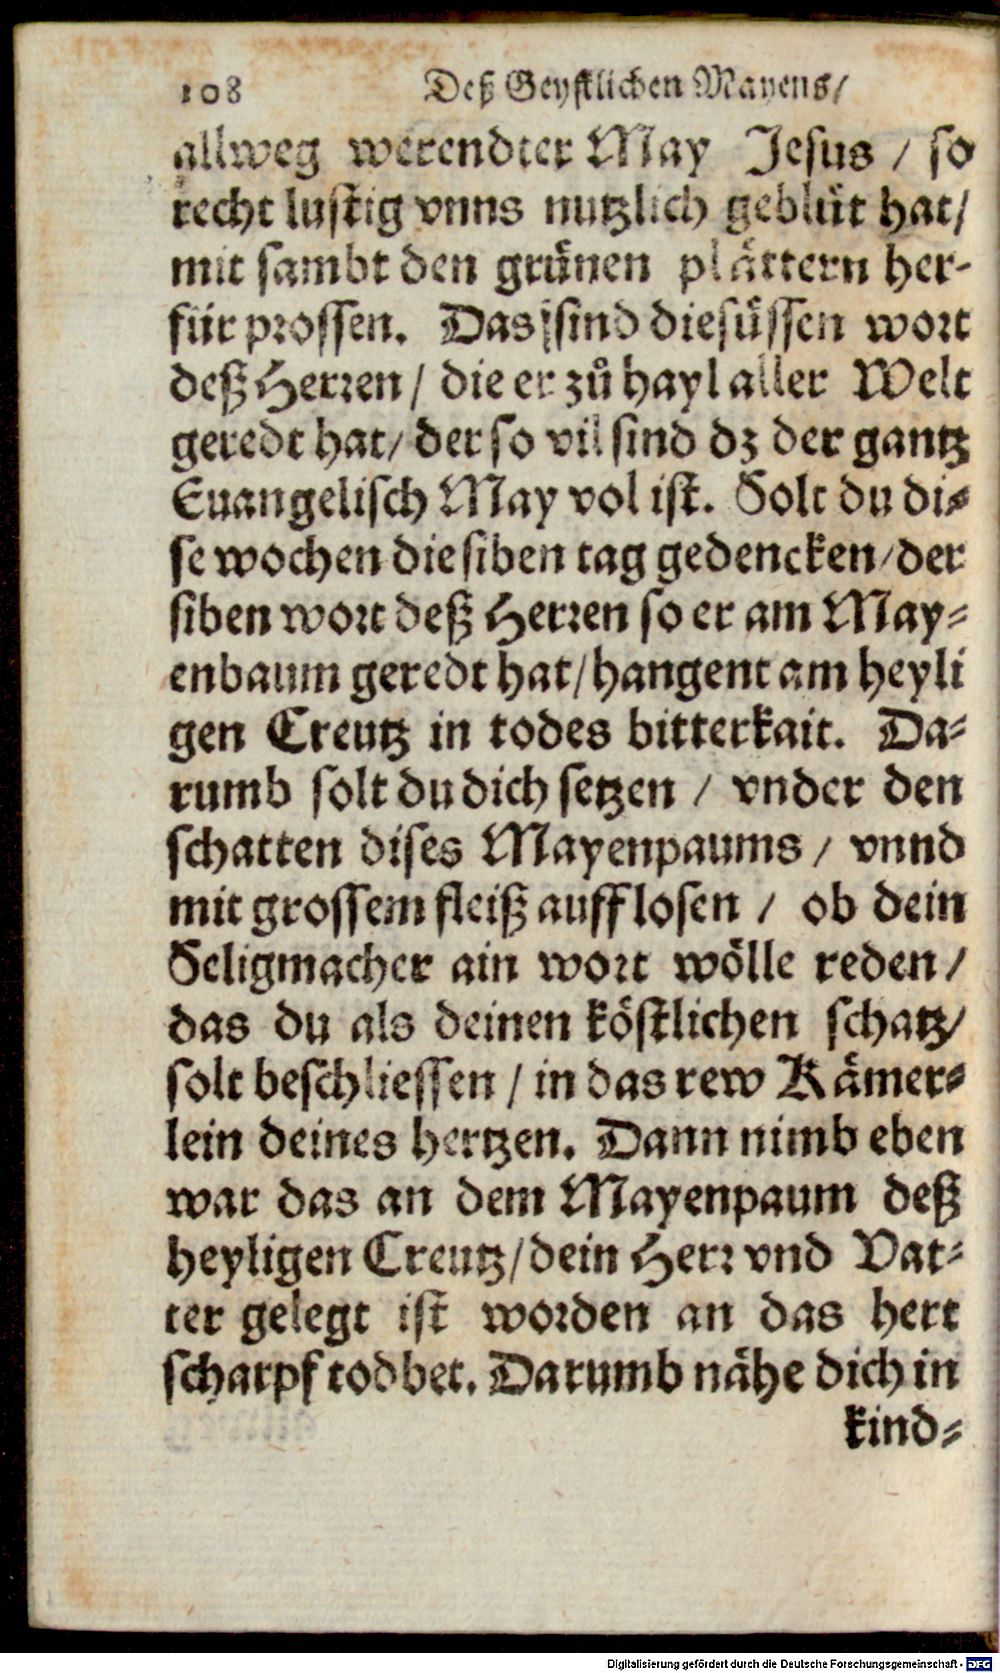 108 Deß Geystlichen Mayens/
allweg werendter May Jesus / so
recht lustig vnns nutzlich geblüt hat/
mit sambt den grünen plättern her-
für prossen. Das sind die süssen wort
deß Herren / die er zů hayl aller Welt
geredt hat/ der so vil sind dz der gantz
Euangelisch May vol ist. Solt du di-
se wochen die siben tag gedencken/ der
siben wort deß Herren so er am May-
enbaum geredt hat/ hangent am heyli
gen Creutz in todes bitterkait. Da-
rumb solt du dich setzen / vnder den
schatten dises Mayenpaums / vnnd
mit grossem fleiß auff losen / ob dein
Seligmacher ain wort wölle reden/
das du als deinen köstlichen schatz/
solt beschliessen / in das rew Kämer-
lein deines hertzen. Dann nimb eben
war das an dem Mayenpaum deß
heyligen Creutz/ dein Herr vnd Vat-
ter gelegt ist worden an das hert
scharpf todbet. Darumb nähe dich in
kind-
Digitalisierung gefördert durch die Deutsche Forschungsgemeinschaft - DFG